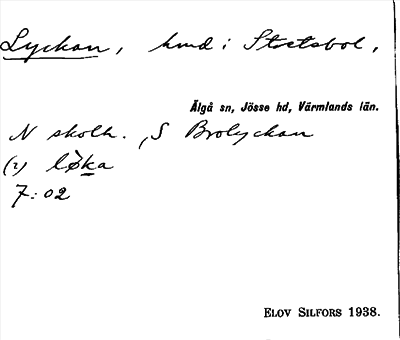 Lyckan, hmd i Stortsbol,
Älgå sn, Jösse hd, Värmlands län.
N skolh. , S Brolyckan
(2) løka
7:02
ELOV SILFORS 1938.